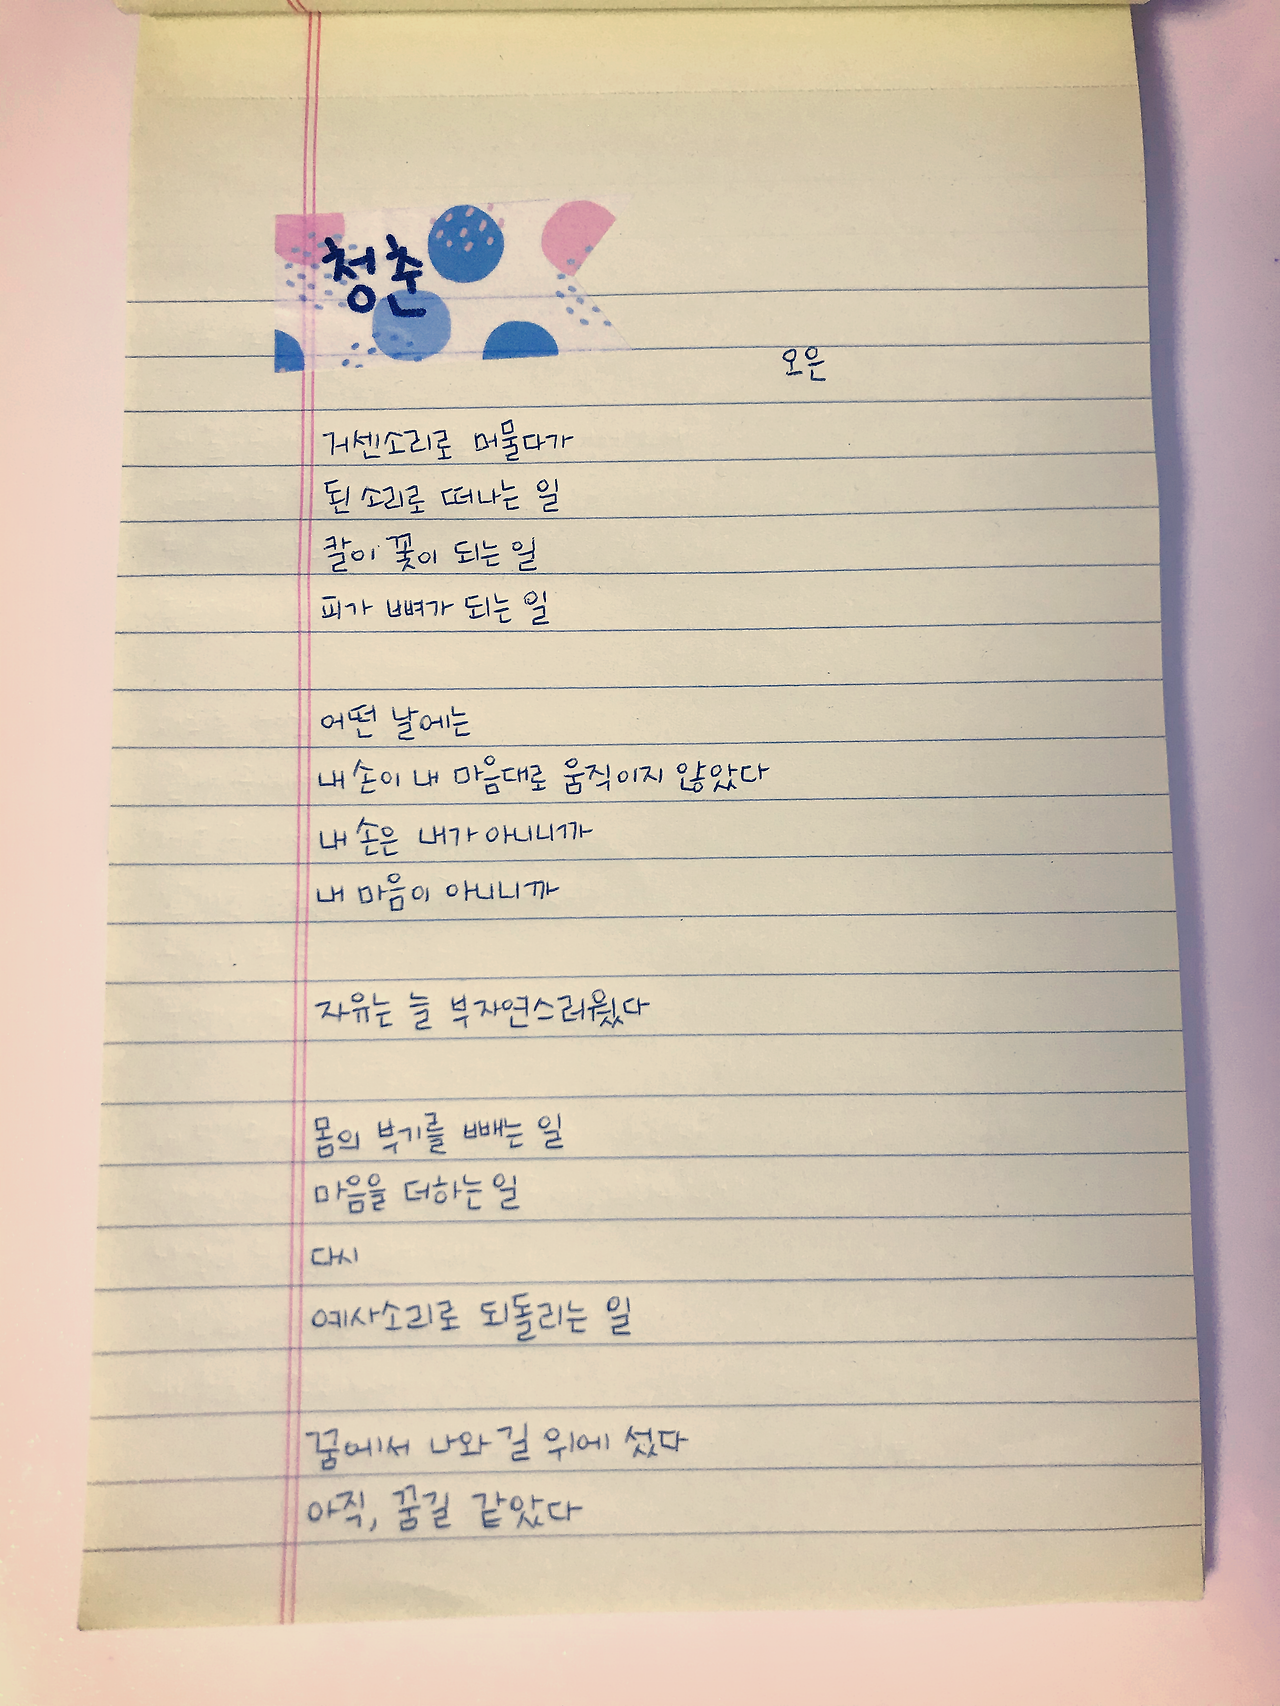 청춘
오은
거센소리로 머물다가
된소리로 떠나는 일
칼이 꽃이 되는 일
피가 뼈가 되는 일
어떤 날에는
내 손이 내 마음대로 움직이지 않았다
내 손은 내가 아니니까
내 마음이 아니니까
자유는 늘 부자연스러웠다
몸의 부기를 빼는 일
마음을 더하는 일
다시
예사소리로 되돌리는 일
꿈에서 나와 길 위에 섰다
아직, 꿈길 같았다